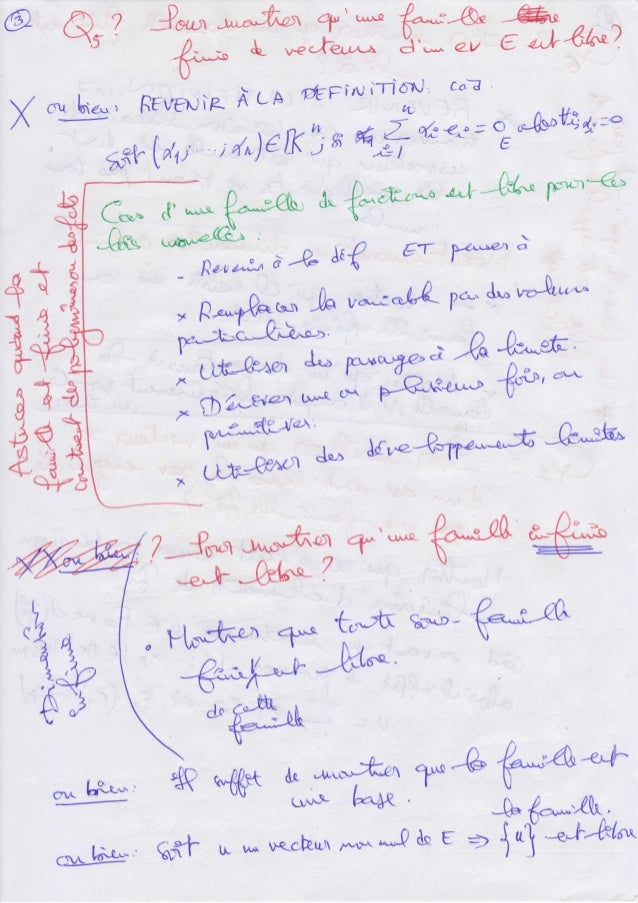 ③ Q5? Pour montrer qu'une famille libre
finie de vecteurs d'un ev E est libre?
X ou bien: REVENIR À LA DEFINITION. càd.
Soit (α1; ...; αn) ∈ K^n; si ∑_{i=1}^{n} αi ei = 0_E alors ∀i αi = 0
Astuces quand la
famille est finie et
contient des polynômes ou des fcts
Cas d'une famille de fonctions est libre pour les
lois usuelles:
- Revenir à la déf ET penser à
x Remplacer la variable par des valeurs
particulières.
x Utiliser des passages à la limite.
x Dériver une ou plusieurs fois, ou
primitives.
x Utiliser des développements limités
XX ou bien: ? Pour montrer qu'une famille infinie
est libre?
Dimension
infinie
• Montrer que toute sous-famille
finie est libre.
de cette
famille
ou bien: Il suffit de montrer que la famille est
une base.
la famille.
ou bien: Soit u un vecteur non nul de E ⇒ {u} est libre